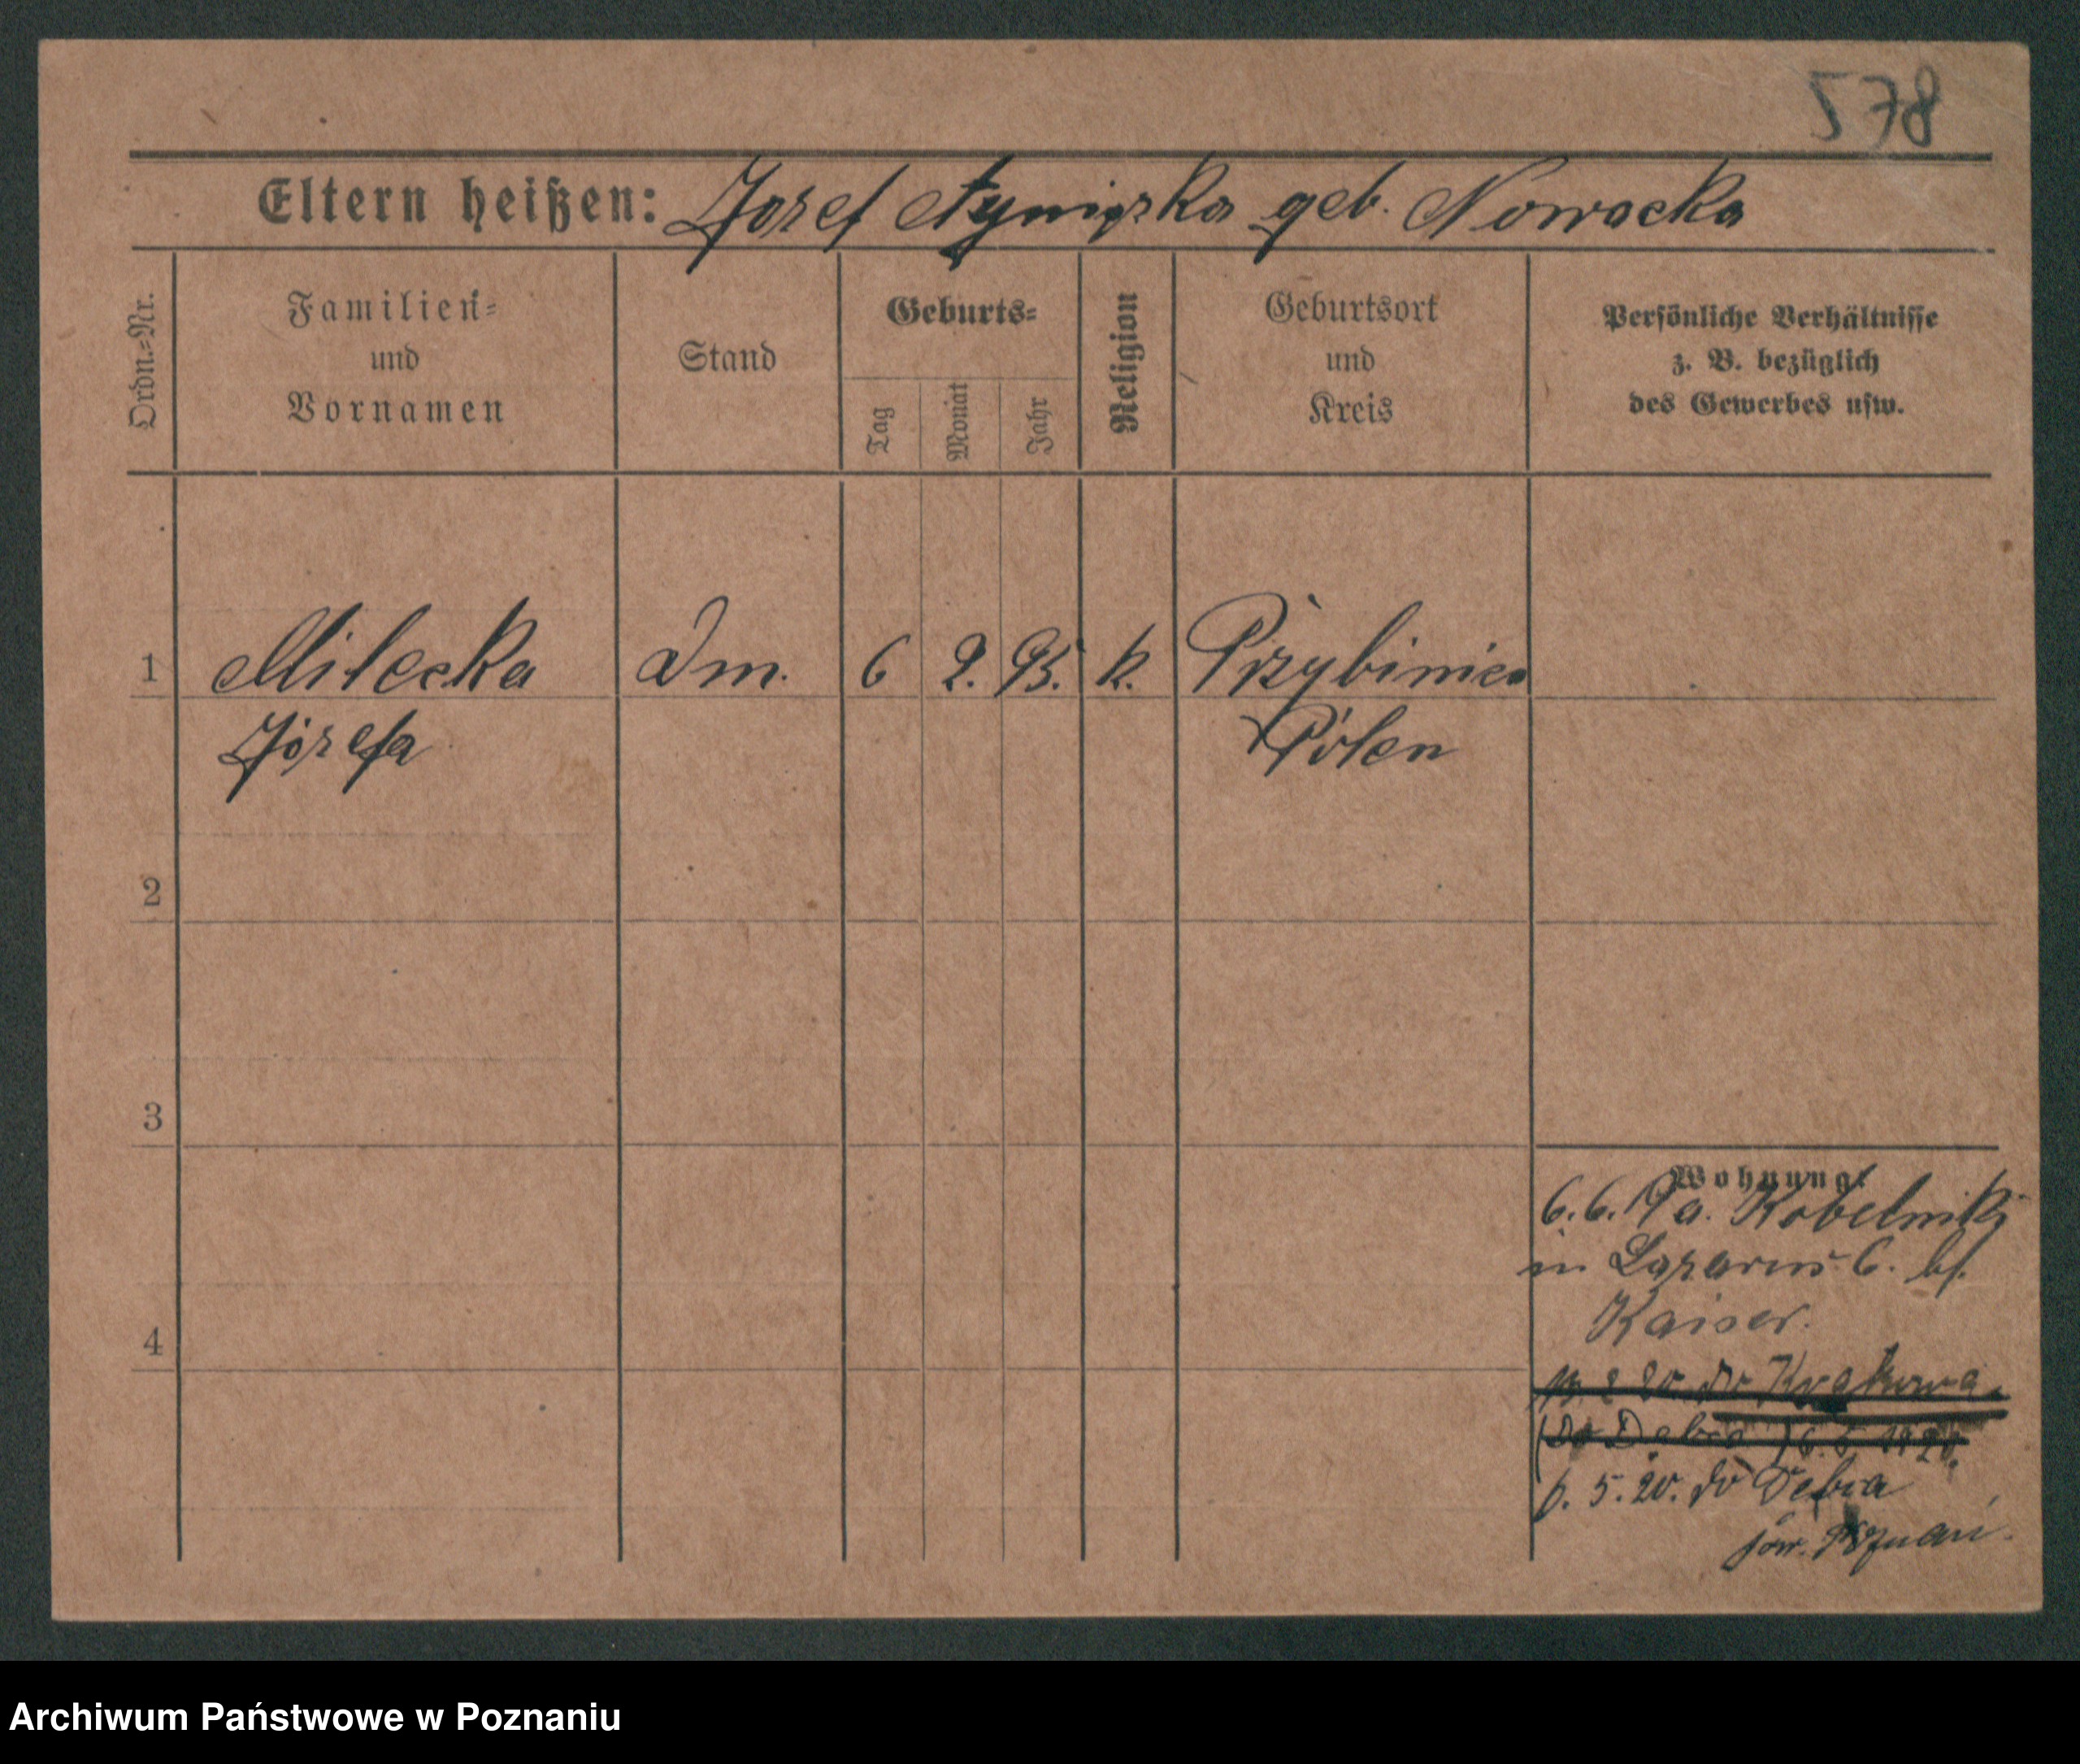 578
Eltern heißen: Josef Agniszka geb. Nowacka
Ordn.=Nr.
Familien=
und
Vornamen
Stand
Geburts=
Tag
Monat
Jahr
Religion
Geburtsort
und
Kreis
Persönliche Verhältnisse
z. B. bezüglich
des Gewerbes usw.
1 Milecka 6 2. 95. k.
Józefa Polen
2
3
4
Wohnung:
6.6.19 a. Kobelniki
in Lazarus 6. bf.
Kaiser.
20 do Krakowa
(Do 6.5. 1920.
5. 20. do Debra
pow. Poznań.
Archiwum Państwowe w Poznaniu